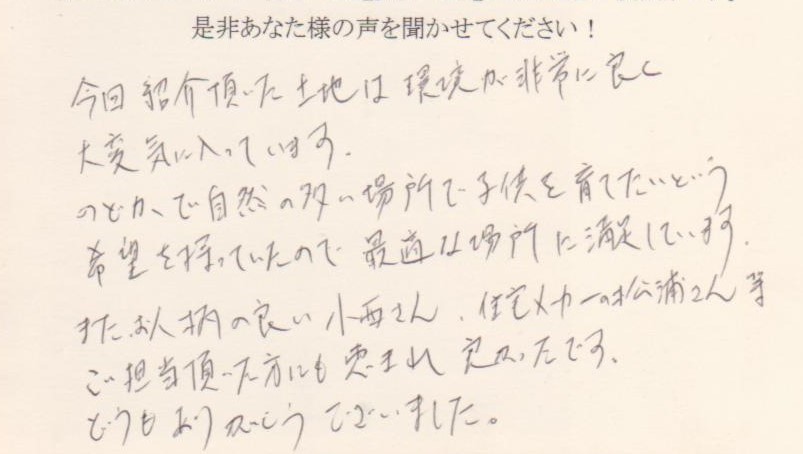 是非あなた様の声を聞かせてください！
今回紹介頂いた土地は環境が非常に良く
大変気に入っています．
のどかで自然の多い場所で子供を育てたいという
希望を持っていたので最適な場所に満足しています．
また、お人柄の良い小西さん、住宅メーカーの松浦さん等
ご担当頂いた方にも恵まれ良かったです．
どうもありがとうございました。